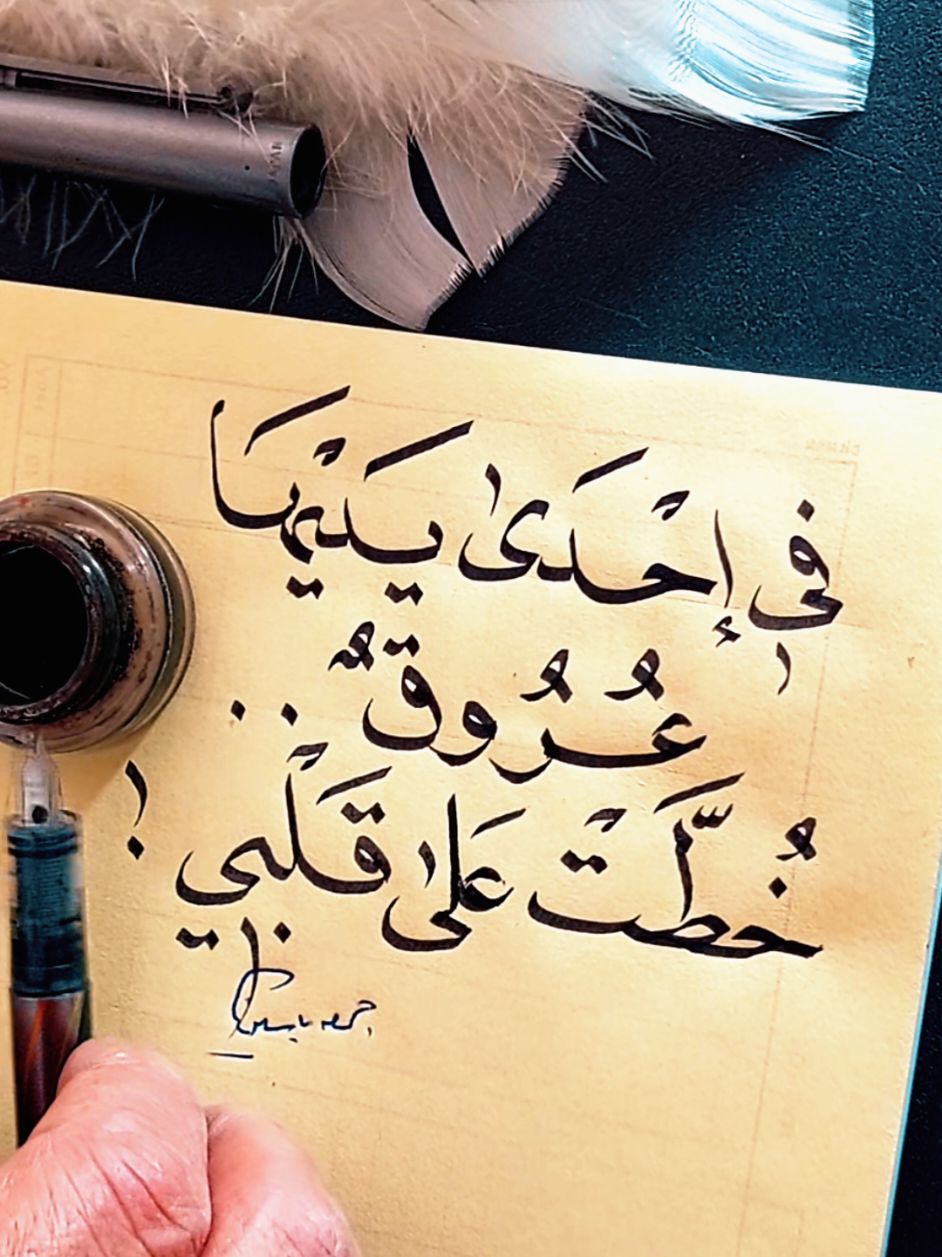 في إِحْدَىٰ يَدَيْهَا
عُرُوقٌ ..
خُطَّتْ عَلىٰ قَلْبي !